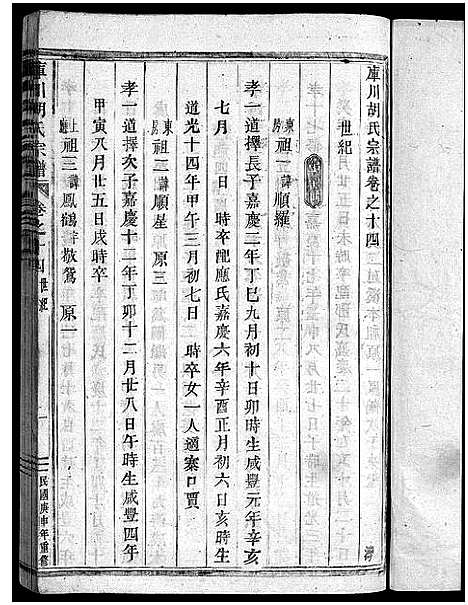 庫川胡氏宗譜卷之十四
世紀
東房祖一諱順羅 原二
孝一道擇長子嘉慶二年丁巳九月初十日卯時生咸豐元年辛亥
七月 日 時卒配應氏嘉慶六年辛酉正月初六日亥時生
道光十四年甲午三月初七日 時卒女一人適寨口賈
東房祖二諱順星 原三
孝一道擇次子嘉慶十二年丁卯十二月廿八日午時生咸豐四年
甲寅八月廿五日戌時卒
祖三諱鳳鶴 原一
庫川胡氏宗譜 卷之十四 世紀
民國庚申年重修